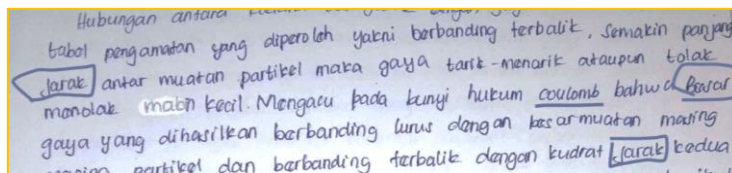 Hubungan antara
tabel pengamatan yang diperoleh yakni berbanding terbalik, semakin panjang
jarak antar muatan partikel maka gaya tarik-menarik ataupun tolak
menolak makin kecil. Mengacu pada bunyi hukum coulomb bahwa Besar
gaya yang dihasilkan berbanding lurus dengan besar muatan masing
partikel dan berbanding terbalik dengan kudrat jarak kedua